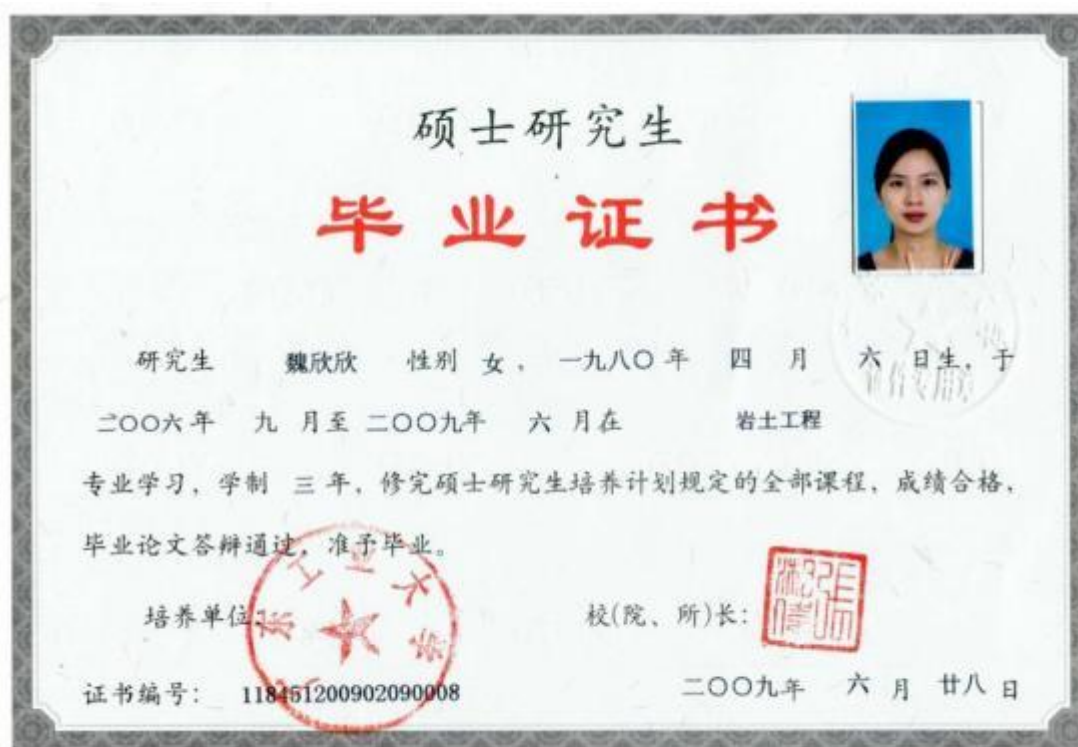 硕士研究生
毕业证书
研究生 魏欣欣 性别 女，一九八〇年 四 月 六 日生，于
二〇〇六年 九 月至二〇〇九年 六 月在 岩土工程
专业学习，学制 三 年，修完硕士研究生培养计划规定的全部课程，成绩合格，
毕业论文答辩通过，准予毕业。
培养单位：
校(院、所)长：
证书编号： 118451200902090008
二〇〇九年 六 月 廿八 日